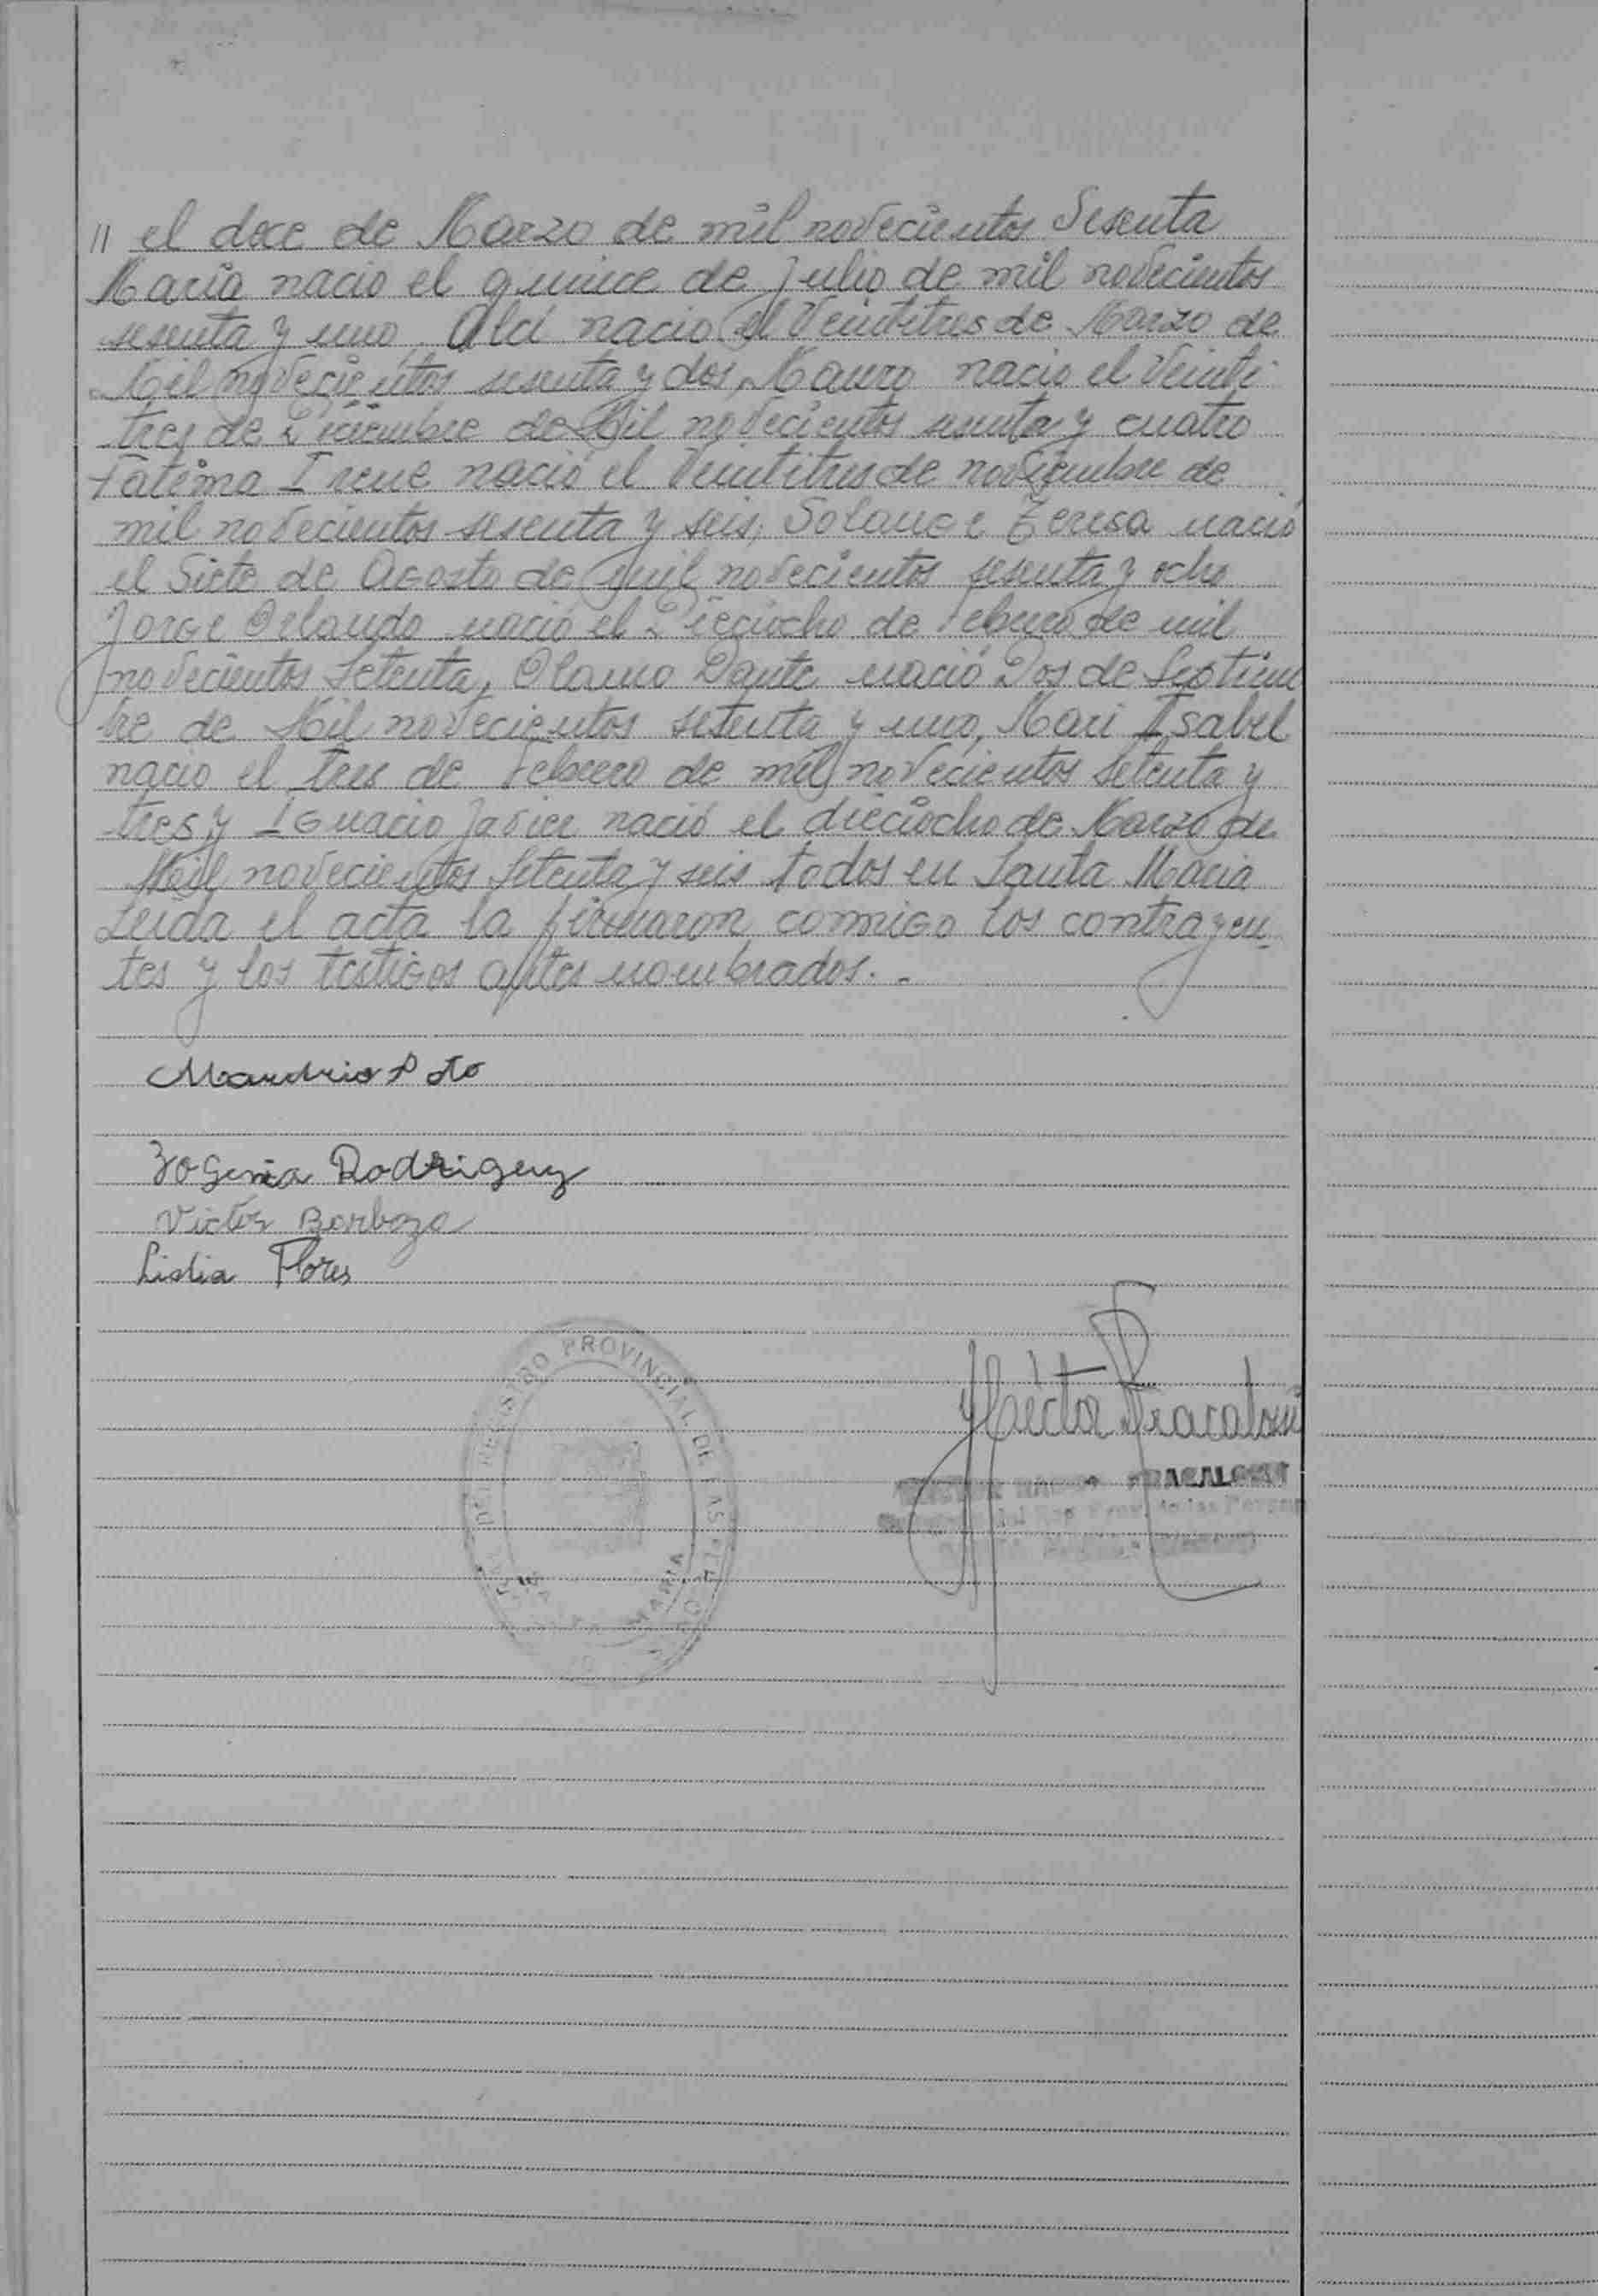 " el doce de Marzo de mil novecientos Sesenta
Maria nacio el quince de Julio de mil novecientos
sesenta y uno, Alci nacio el Veintitres de Marzo de
Mil novecientos sesenta y dos, Mauro nacio el Veinti
tres de Diciembre de Mil novecientos sesenta y cuatro
Fatima Irene nació el Veintitres de noviembre de
mil novecientos sesenta y seis, Solange Teresa nació
el Siete de Agosto de mil novecientos sesenta y ocho
Jorge Orlando nació el Dieciocho de Febrero de mil
novecientos Setenta, Olamo Dante nació Dos de Septiem
bre de Mil novecientos setenta y uno, Mari Isabel
nacio el tres de Febrero de mil novecientos setenta y
tres y Ignacio Javier nació el dieciocho de Marzo de
Mil novecientos Setenta y seis todos en Santa Maria
Leida el acta la firmaron conmigo los contrayen-
tes y los testigos antes nombrados. -
Rodriguez
Victor Barboza
Lidia Flores
REGISTRO PROVINCIAL DE LAS
MARIA
Héctor Fracalossi
FRACALOSSI